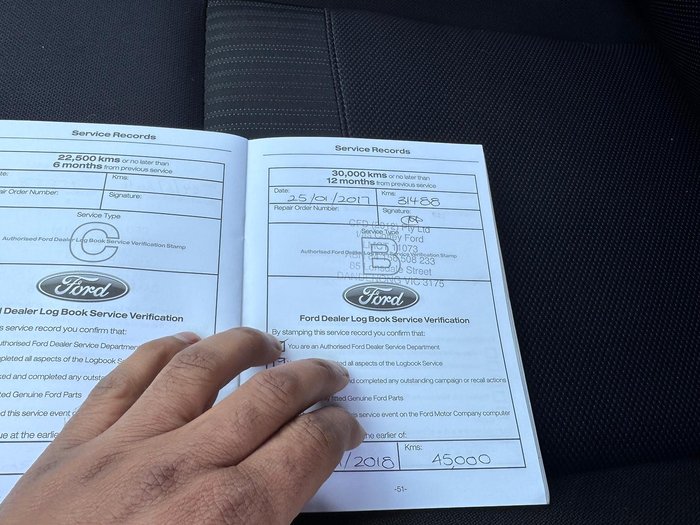 Service Records
22,500 kms or no later than
6 months from previous service
Kms:
Order Number:
Signature:
Service Type
C
Authorised Ford Dealer Log Book Service Verification Stamp
Ford
Dealer Log Book Service Verification
service record you confirm that:
Authorised Ford Dealer Service Department
all aspects of the Logbook
and completed any
Genuine Ford Parts
this service event
at the earlie
Service Records
30,000 kms or no later than
12 months from previous service
Date:
25/01/2017
Kms:
31488
Repair Order Number:
Signature:
Pty Ltd
Ford
Service Type
B
LMCT 11073
Authorised Ford Dealer Log Book Service Verification Stamp
508 233
65 Lonsdale Street
DANDENONG VIC 3175
Ford
Ford Dealer Log Book Service Verification
By stamping this service record you confirm that:
You are an Authorised Ford Dealer Service Department
all aspects of the Logbook Service
completed any outstanding campaign or recall actions
fitted Genuine Ford Parts
service event on the Ford Motor Company computer
earlier of:
/2018
Kms:
45,000
-51-